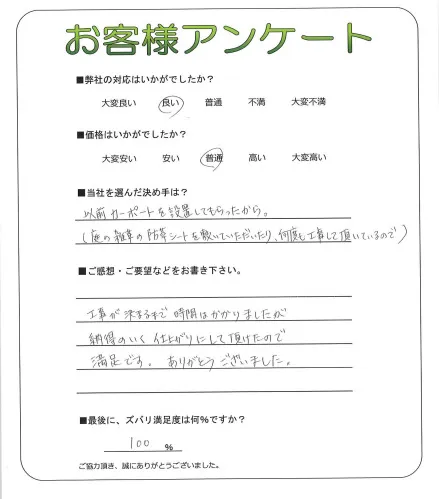 お客様アンケート
■弊社の対応はいかがでしたか？
大変良い 良い 普通 不満 大変不満
■価格はいかがでしたか？
大変安い 安い 普通 高い 大変高い
■当社を選んだ決め手は？
以前カーポートを設置してもらったから。
(庭の雑草の防草シートを敷いていただいたり、何度も工事して頂いているので)
■ご感想・ご要望などをお書き下さい。
工事が決まるまで時間はかかりましたが
納得のいく仕上がりにして頂けたので
満足です。ありがとうございました。
■最後に、ズバリ満足度は何％ですか？
100 ％
ご協力頂き、誠にありがとうございました。